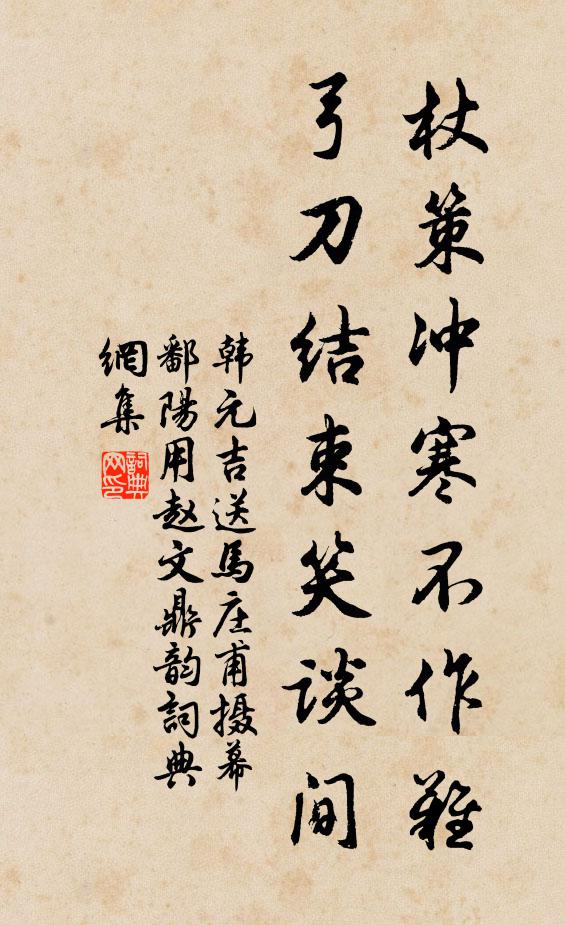 杖策冲寒不作难
弓刀结束笑谈间
韩元吉送馬庄甫摄幕
鄱陽用赵文鼎韵詞典
網集
詞典
网印